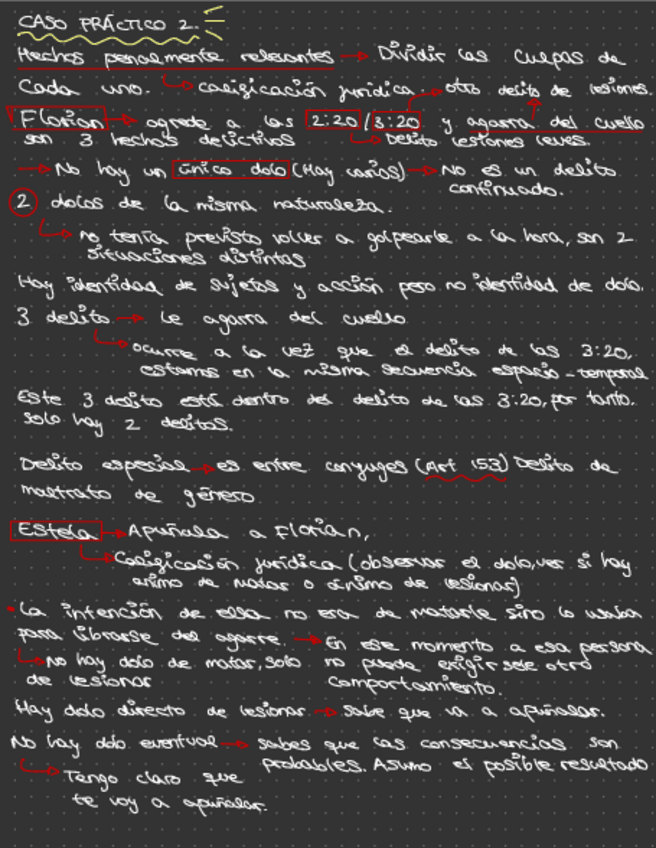 CASO PRÁCTICO 2.
Hechos penalmente relevantes → Dividir las culpas de
cada uno. → calificación jurídica. → otro delito de lesiones.
Florian → agrede a las 2:20 / 3:20 y agarra del cuello
son 3 hechos delictivos → Delito lesiones leves.
→ No hay un único dolo (Hay varios) → No es un delito
continuado.
2 dolos de la misma naturaleza.
→ no tenía previsto volver a golpearle a la hora, son 2
situaciones distintas
Hay identidad de sujetos y acción pero no identidad de dolo.
3 delito → le agarra del cuello
→ ocurre a la vez que el delito de las 3:20,
estamos en la misma secuencia espacio-temporal
Este 3 delito está dentro del delito de las 3:20, por tanto,
solo hay 2 delitos.
Delito especial → es entre conyuges (Art 153) Delito de
maltrato de género
Estela → Apuñala a Florian,
→ Calificación jurídica (observar el dolo, ver si hay
animo de matar o ánimo de lesionar)
• La intención de ella no era de matarle sino lo usaba
para librarse del agarre. → En ese momento a esa persona
→ No hay dolo de matar, solo no puede exigirsele otro
de lesionar comportamiento.
Hay dolo directo de lesionar → sabe que va a apuñalar.
No hay dolo eventual → sabes que las consecuencias son
probables. Asumo el posible resultado
→ Tengo claro que
te voy a apuñalar.